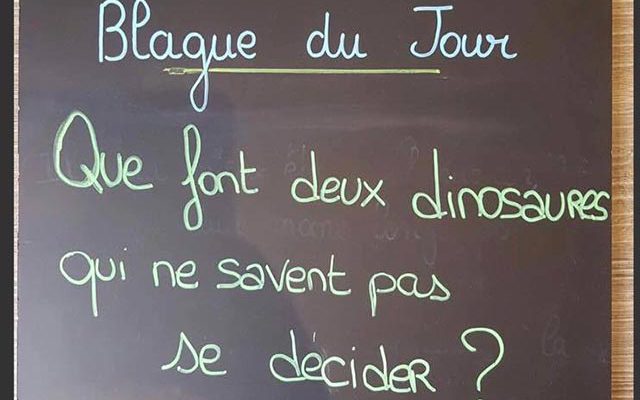 Blague du Jour
Que font deux dinosaures
qui ne savent pas
se décider ?